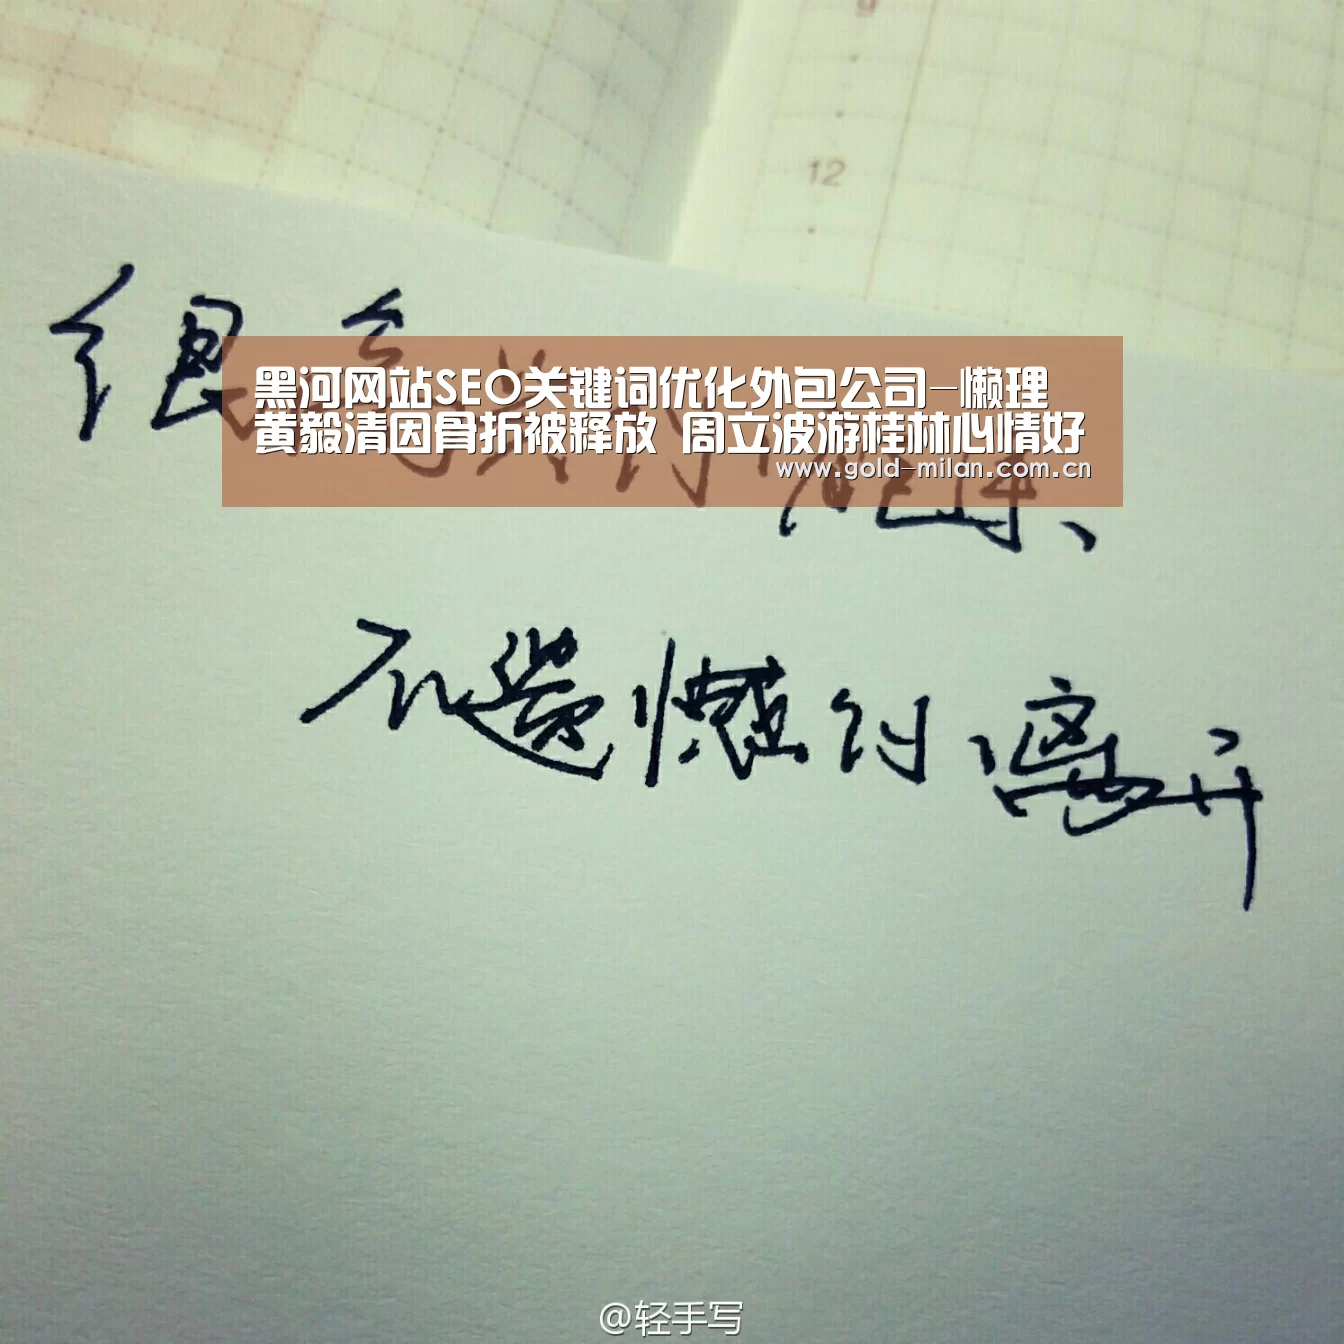 12
很多
黑河网站SEO关键词优化外包公司-懒理
黄毅清因骨折被释放 周立波游桂林心情好
www.gold-milan.com.cn
不過懒的离开
@轻手写